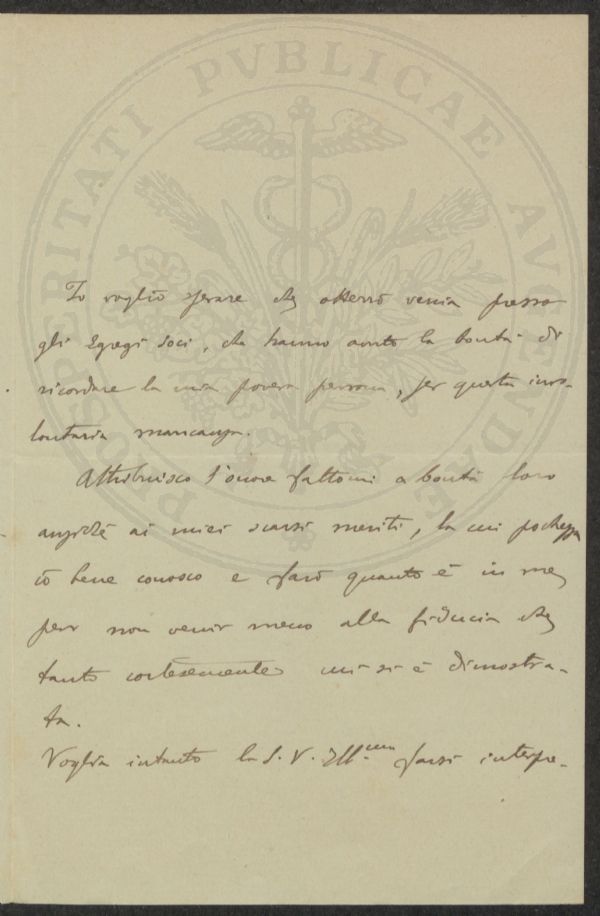 PROSPERITATI PVBLICAE AVGENDAE
Io voglio sperare che otterrò venia presso
gli Egregi Soci, che hanno avuto la bontà di
ricordare la mia povera persona, per questa invo-
lontaria mancanza.
Attribuisco l'onore fattomi a bontà loro
anzichè ai miei scarsi meriti, la cui pochezza
io bene conosco e farò quanto è in me
per non venir meno alla fiducia che
tanto cortesemente mi si è dimostra-
ta.
Voglia intanto la S. V. Ill.ma farsi interpre-